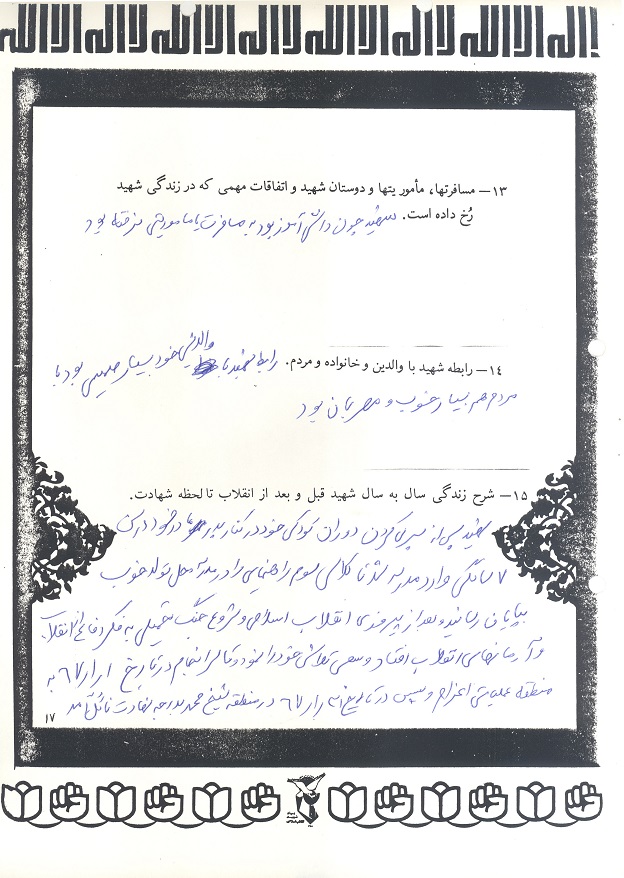 لااله الاالله لااله الاالله لااله الاالله لااله الاالله
۱۳– مسافرتها، مأموریتها و دوستان شهید و اتفاقات مهمی که در زندگی شهید
رُخ داده است. شهید چون دانش آموز بود به مسافرت یا ماموریتی نرفته بود
۱۴– رابطه شهید با والدین و خانواده و مردم. رابطه شهید با والدین خود بسیار صمیمی بود با
مردم هم بسیار خوب و مهربان بود
۱۵– شرح زندگی سال به سال شهید قبل و بعد از انقلاب تا لحظه شهادت.
شهید پس از سپری کردن دوران کودکی خود در کنار پدر و مادر خود در سن
۷ سالگی وارد مدرسه شد تا کلاس سوم راهنمایی را در مدرسه محل تولد خود
بپایان رسانید و بعد از پیروزی انقلاب اسلامی و شروع جنگ تحمیلی به فکر دفاع از انقلاب
و آرمانهای انقلاب افتاد و سعی و تلاش خود را نمود و تا سرانجام در تاریخ ۶۷ به
منطقه عملیاتی اعزام و سپس در تاریخ ۶۷ در منطقه شیخ محمد بدرجه شهادت نائل آمد
۱۷